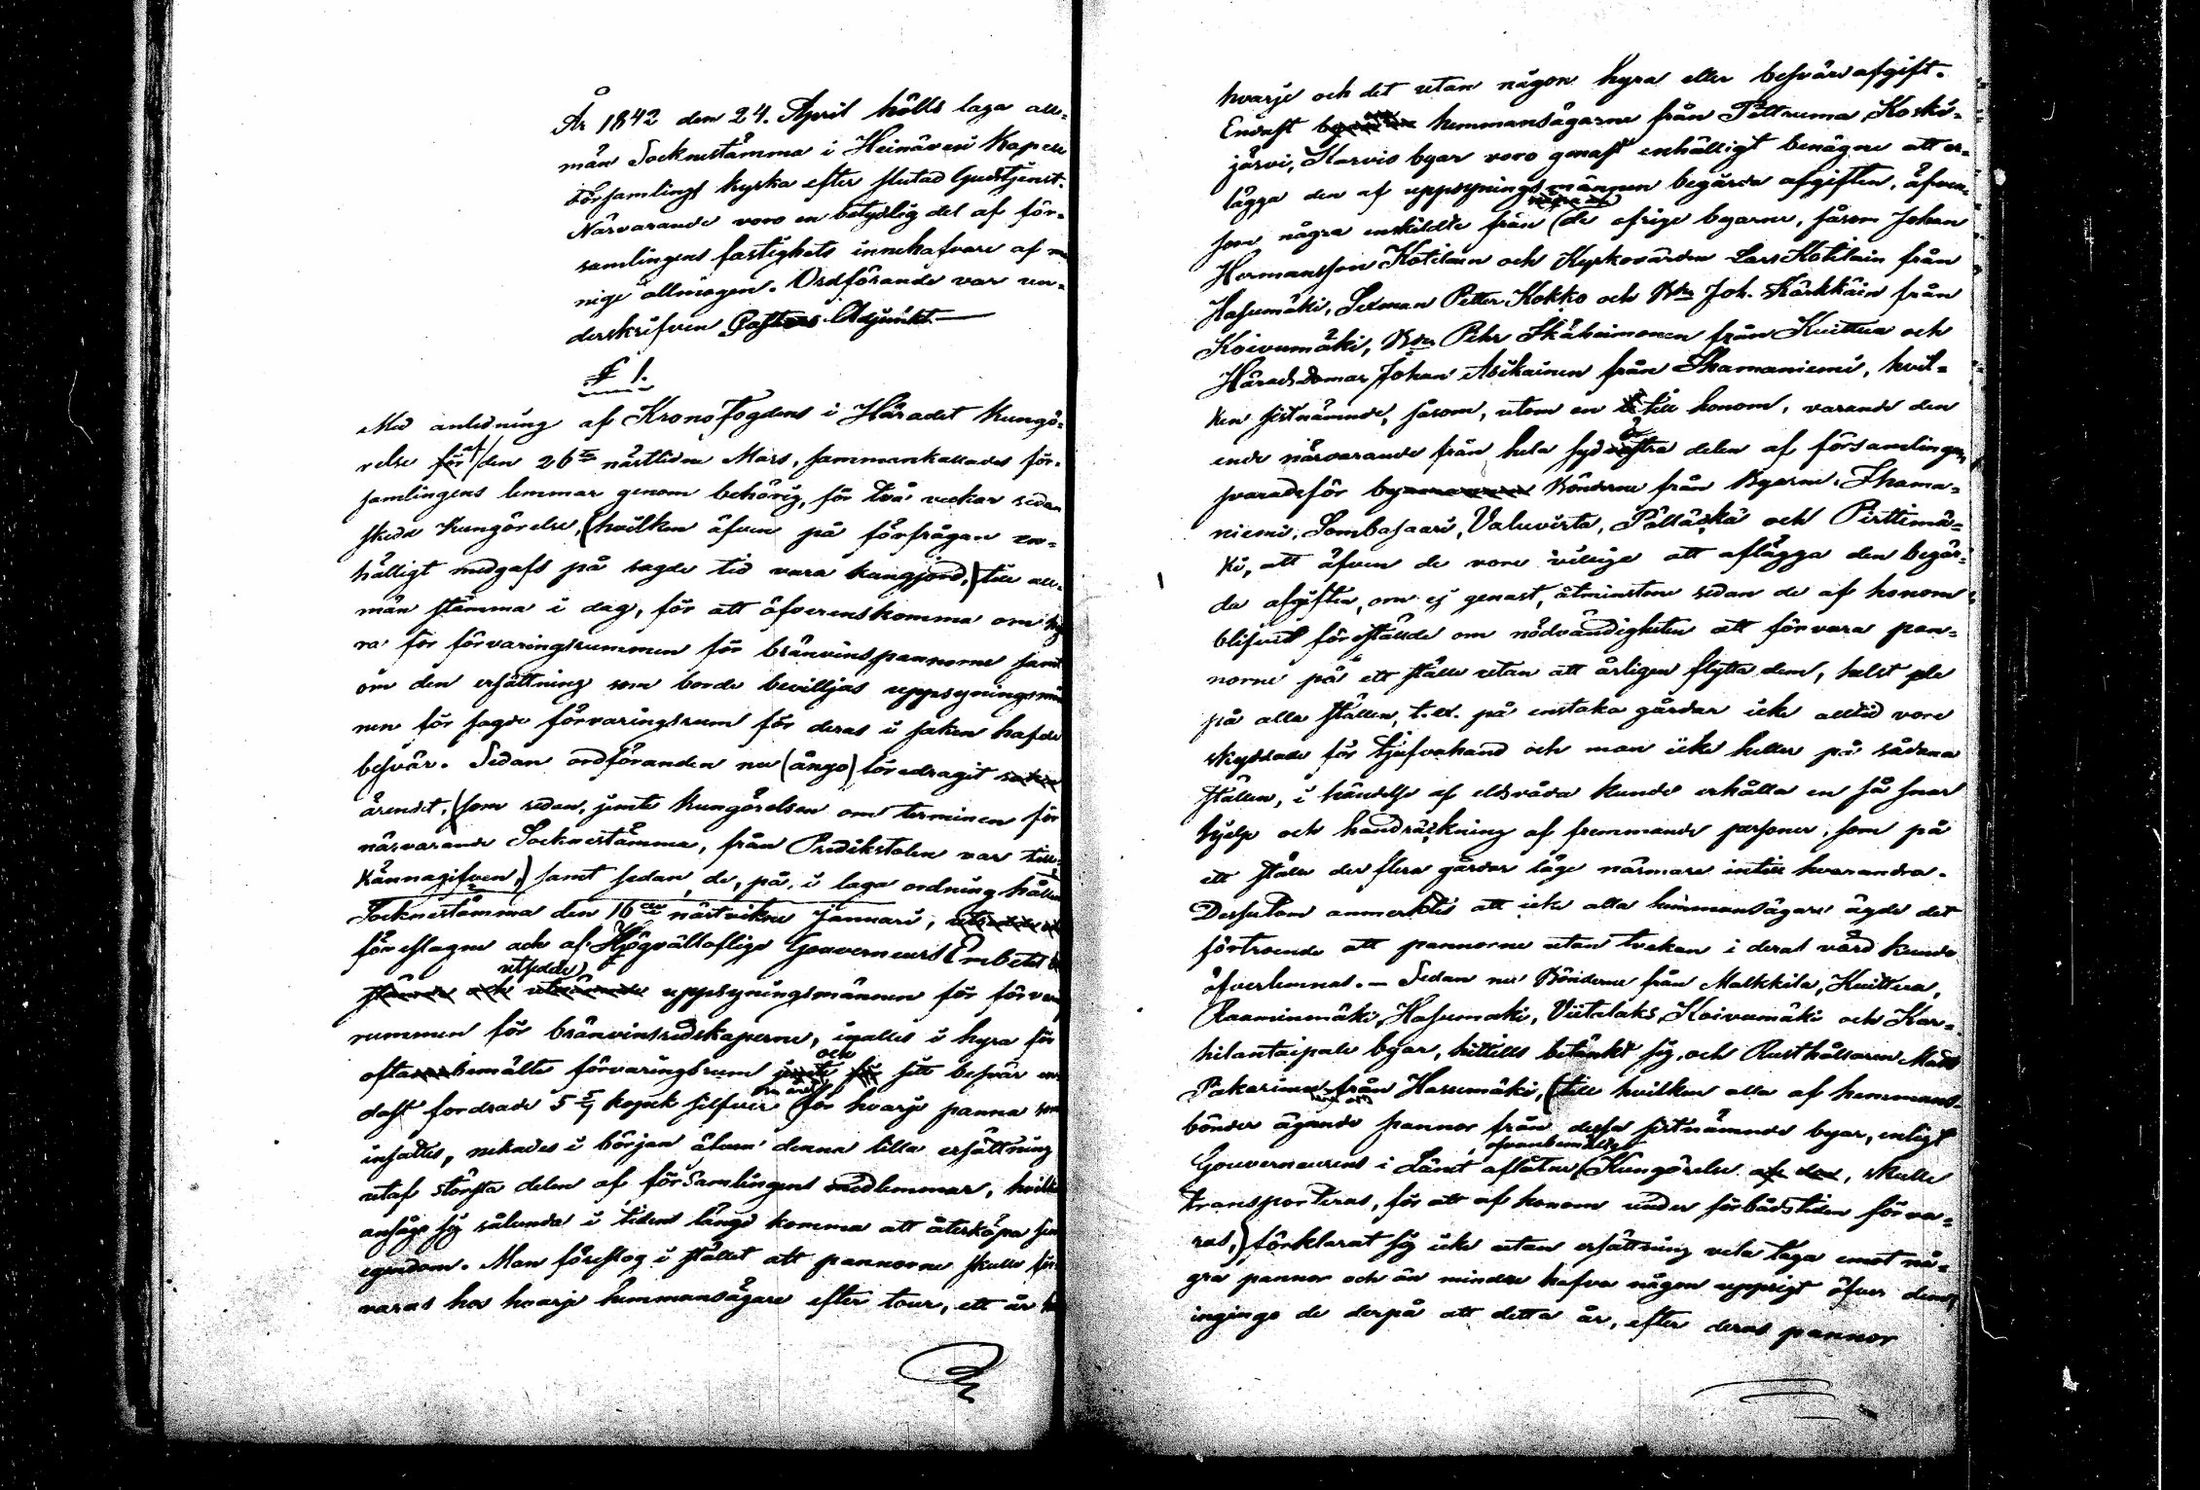 År 1842 den 24. April hölls laga all-
män Socknestämma i Heinävesi Kapell
församlings kyrka efter slutad Gudstjenst.
Närvarande voro en betydlig del af för-
samlingens fastighets innehafvare af me-
nige allmogen. Ordförande var un-
derskrifven Pastors Adjunkt.
§ 1.
Med anledning af Kronofogdens i Häradet Kungö-
relse för af den 26 nästlidne Mars, sammankallades för-
samlingens lemmar genom behörig, för två veckor sedan
skedd Kungörelse, (hvilken äfven på förfrågan en-
hälligt medgafs på sagde tid vara kungjord,) till all-
män stämma i dag, för att öfverenskomma om hy-
ra för förvaringsrummen för bränvinspannorne samt
om den ersättning som borde beviljas uppsyningsmän-
nen för sagde förvaringsrum för deras i saken hafde
besvär. Sedan ordföranden nu (ånyo) föredragit saken
ärendet, (som redan, jemte Kungörelsen om terminen för
närvarande Socknestämma, från Predikstolen var till-
kännagifven,) samt sedan de, på, i laga ordning hållen
Socknestämma den 16 nästvikne Januari,
föreslagne och af Högvällofliga Gouverneurs Embetet
utsedde
uppsyningsmännen för förva-
rummen för bränvinsredskaperne, i hyra för
ofta bemälte förvaringsrum och för sitt besvär en-
dast fordrade 5 5/7 kopek silfver om året för hvarje panna som
insattes, nekades i början äfven denna lilla ersättning
utaf största delen af församlingens medlemmar, hvilka
ansågo sig sålunda i tidens längd komma att återköpa sin
egendom. Man föreslog i stället att pannorne skulle för-
varas hos hvarje hemmansägare efter tour, ett år hos
hvarje och det utan någon hyra eller besvärsafgift.
Endast hemmansägarne från Pölttuma, Koski-
järvi, Karvio byar voro genast enhälligt benägne att er-
lägga den af uppsyningsmännen begärda afgiften, äfven-
som några enskildte från (några af de öfrige byarne, såsom Johan
Hermansson Kotilain och Kyrkovärden Lars Kotilain från
Hasumäki, Sexman Petter Kokko och Bdn Joh. Kärkkäin från
Koivumäki, Bdn Pehr Ikäheimonen från Kuittua och
Häradsdomar Johan Asikainen från Ihamaniemi, hvil-
ken sistnämnde, såsom, utom en till honom, varande den
ende närvarande från hela sydöstra delen af församlingen,
svarade för Bönderne från Byarne Ihama-
niemi, Sombasaari, Valuvirta, Pölläkkä och Pirttimä-
ki, att äfven de vore villige att aflägga den begär-
da afgiften, om ej genast, åtminstone sedan de af honom
blifvit föreställde om nödvändigheten att förvara pan-
norne på ett ställe utan att årligen flytta dem, helst de
på alla ställen, t.ex. på enstaka gårdar icke alltid vore
skyddade för tjufvahand och man icke heller på sådana
ställen, i händelse af eldsvåda kunde erhålla en så snar
hjelp och handräckning af fremmande personer, som på
ett ställe der flera gårdar låge närmare intill hvarandra.
Dessutom anmerktes att icke alla hemmansägare ägde det
förtroende att pannorne utan tvekan i deras vård kunde
öfverlemnas. — Sedan nu Bönderne från Malkkila, Kuittua,
Raaminmäki, Hasumäki, Viitalaks, Koivumäki och Kar-
hilantaipale byar, hittills betänkt sig, och Rusthållaren Mats
Pakarinen från Hasumäki, (till hvilken alla af hemmans-
bönder ägande pannor från dessa sistnämnde byar, enligt
Gouverneurens i Länet aflåtne (ofvanbemälte Kungörelse af den, skulle
transporteras, för att af honom under förbudstiden förva-
ras,) förklarat sig icke utan ersättning vela taga emot nå-
gra pannor och än mindre hafva någon uppsigt öfver dem,
ingingo de derpå att detta år, efter deras pannor